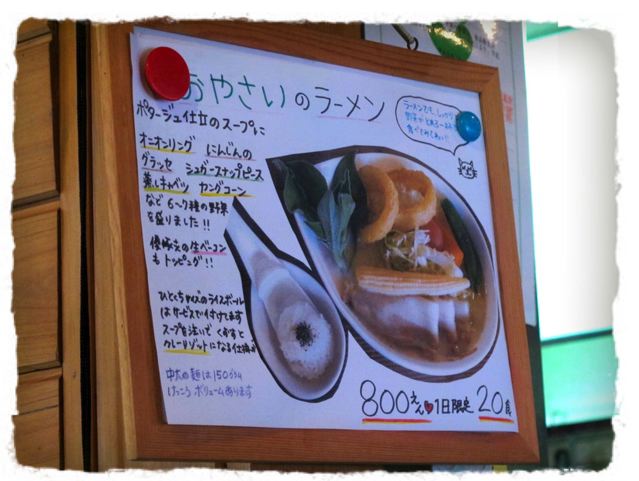 おやさいのラーメン
ラーメンでも、しっかり
野菜がとれる
食べてみてね!!
ポタージュ仕立のスープに
オニオンリング にんじんの
グラッセ シュガースナップピース
蒸しキャベツ ヤングコーン
など 6〜7種の野菜
を盛りました!!
優味夫の生ベーコン
もトッピング!!
ひとくちサイズのライスボール
はサービスで付けてます
スープを注いで くずすと
クレーリゾットになる仕掛け
中太の麺は150グラム
けっこう ボリュームあります
800えん♥1日限定 20食